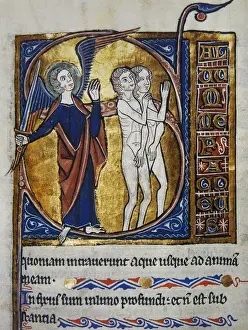 quoniam intrauerunt aque usque ad animā
meam.
Infixus sum in limo profundi: et n̄ est sub
stantia.